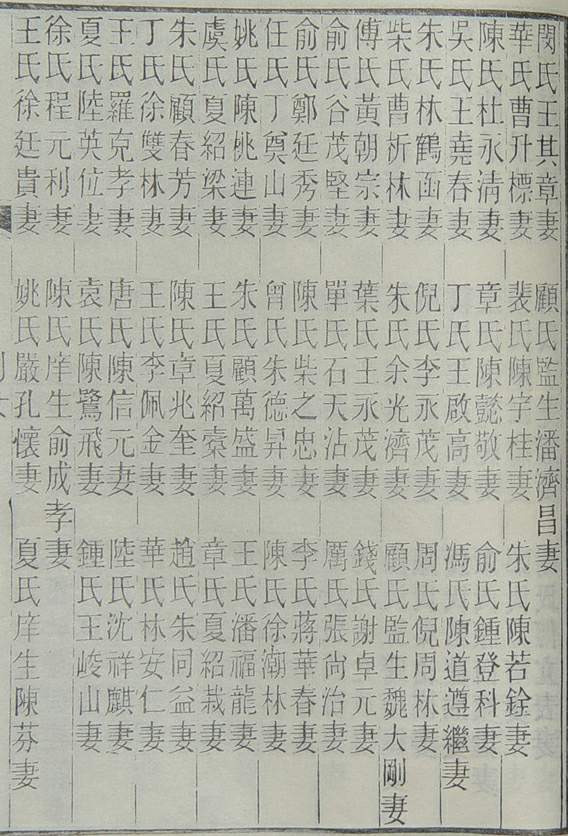 閔氏王其章妻 顧氏監生潘濟昌妻
華氏曹升標妻 裴氏陳宇桂妻 朱氏陳若銓妻
陳氏杜永清妻 章氏陳懿敬妻 俞氏鍾登科妻
吳氏王堯春妻 丁氏王啟高妻 馮氏陳道遵繼妻
朱氏林鶴函妻 倪氏李永茂妻 周氏倪周林妻
柴氏曹析林妻 朱氏余光濟妻 顧氏監生魏大剛妻
傅氏黃朝宗妻 葉氏王永茂妻 錢氏謝卓元妻
俞氏谷茂堅妻 單氏石天沾妻 厲氏張尚治妻
俞氏鄭廷秀妻 陳氏柴之忠妻 李氏蔣華春妻
任氏丁奠山妻 曾氏朱德昇妻 陳氏徐潮林妻
姚氏陳桃連妻 朱氏顧萬盛妻 王氏潘福龍妻
虞氏夏紹梁妻 王氏夏紹妻 章氏夏紹栽妻
朱氏顧春芳妻 陳氏章兆奎妻 趙氏朱同益妻
丁氏徐雙林妻 王氏李佩金妻 華氏林安仁妻
王氏羅克孝妻 唐氏陳信元妻 陸氏沈祥麒妻
夏氏陸英位妻 袁氏陳鷺飛妻 鍾氏王峻山妻
徐氏程元利妻 陳氏庠生俞成孝妻
王氏徐廷貴妻 姚氏嚴孔懷妻 夏氏庠生陳芬妻